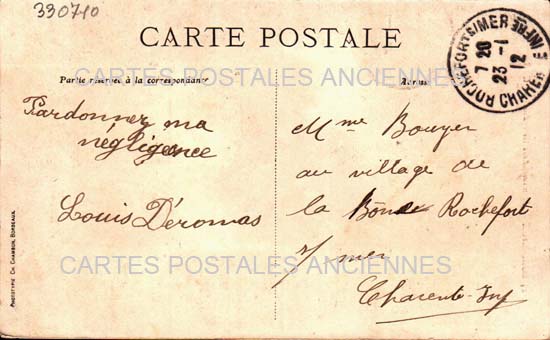 330710
CARTE POSTALE
Partie réservée à la correspondance
Adresse
ROCHEFORT S MER
CHARENTE INFRE
7 20
23 - 1
12
CARTES POSTALES ANCIENNES
Pardonnez ma
négligence
Louis Déromas
Mme Bouyer
au village de
la Rochefort
s/ mer
Charente-Inf
CARTES POSTALES ANCIENNES
PHOTOTYPIE CH. CHAMBON, BORDEAUX.